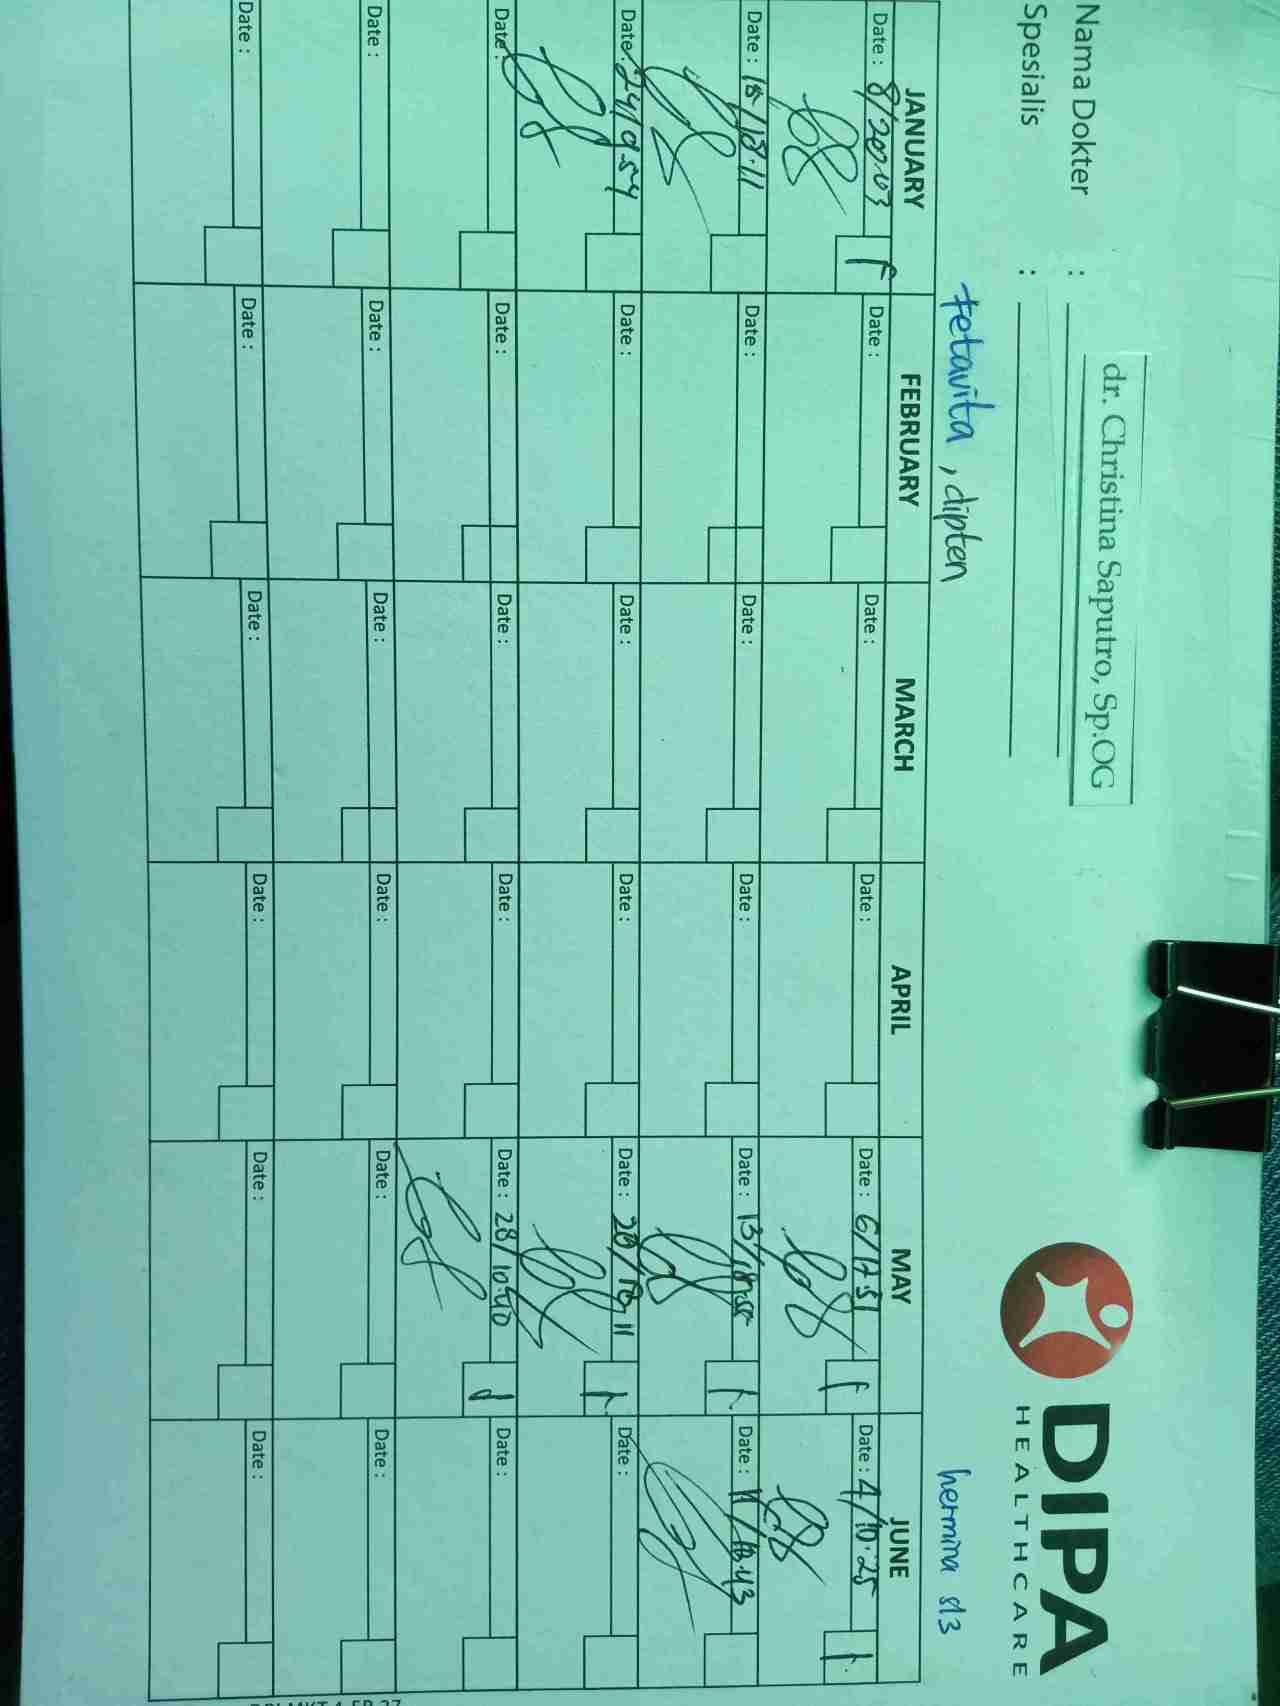 Nama Dokter : dr. Christina Saputro, Sp.OG
Spesialis :
DIPA
HEALTHCARE
fetavita, dipten
hermina s13
JANUARY FEBRUARY MARCH APRIL MAY JUNE
Date : 8/20.03 Date : Date : Date : Date : 6/17 51 Date : 4/10.25
Date : 15/18.11 Date : Date : Date : Date : 13/ Date : 11/
Date : 24/0954 Date : Date : Date : Date : 20/ Date :
Date : Date : Date : Date : Date : 28/10.40 Date :
Date : Date : Date : Date : Date : Date :
Date : Date : Date : Date : Date : Date :